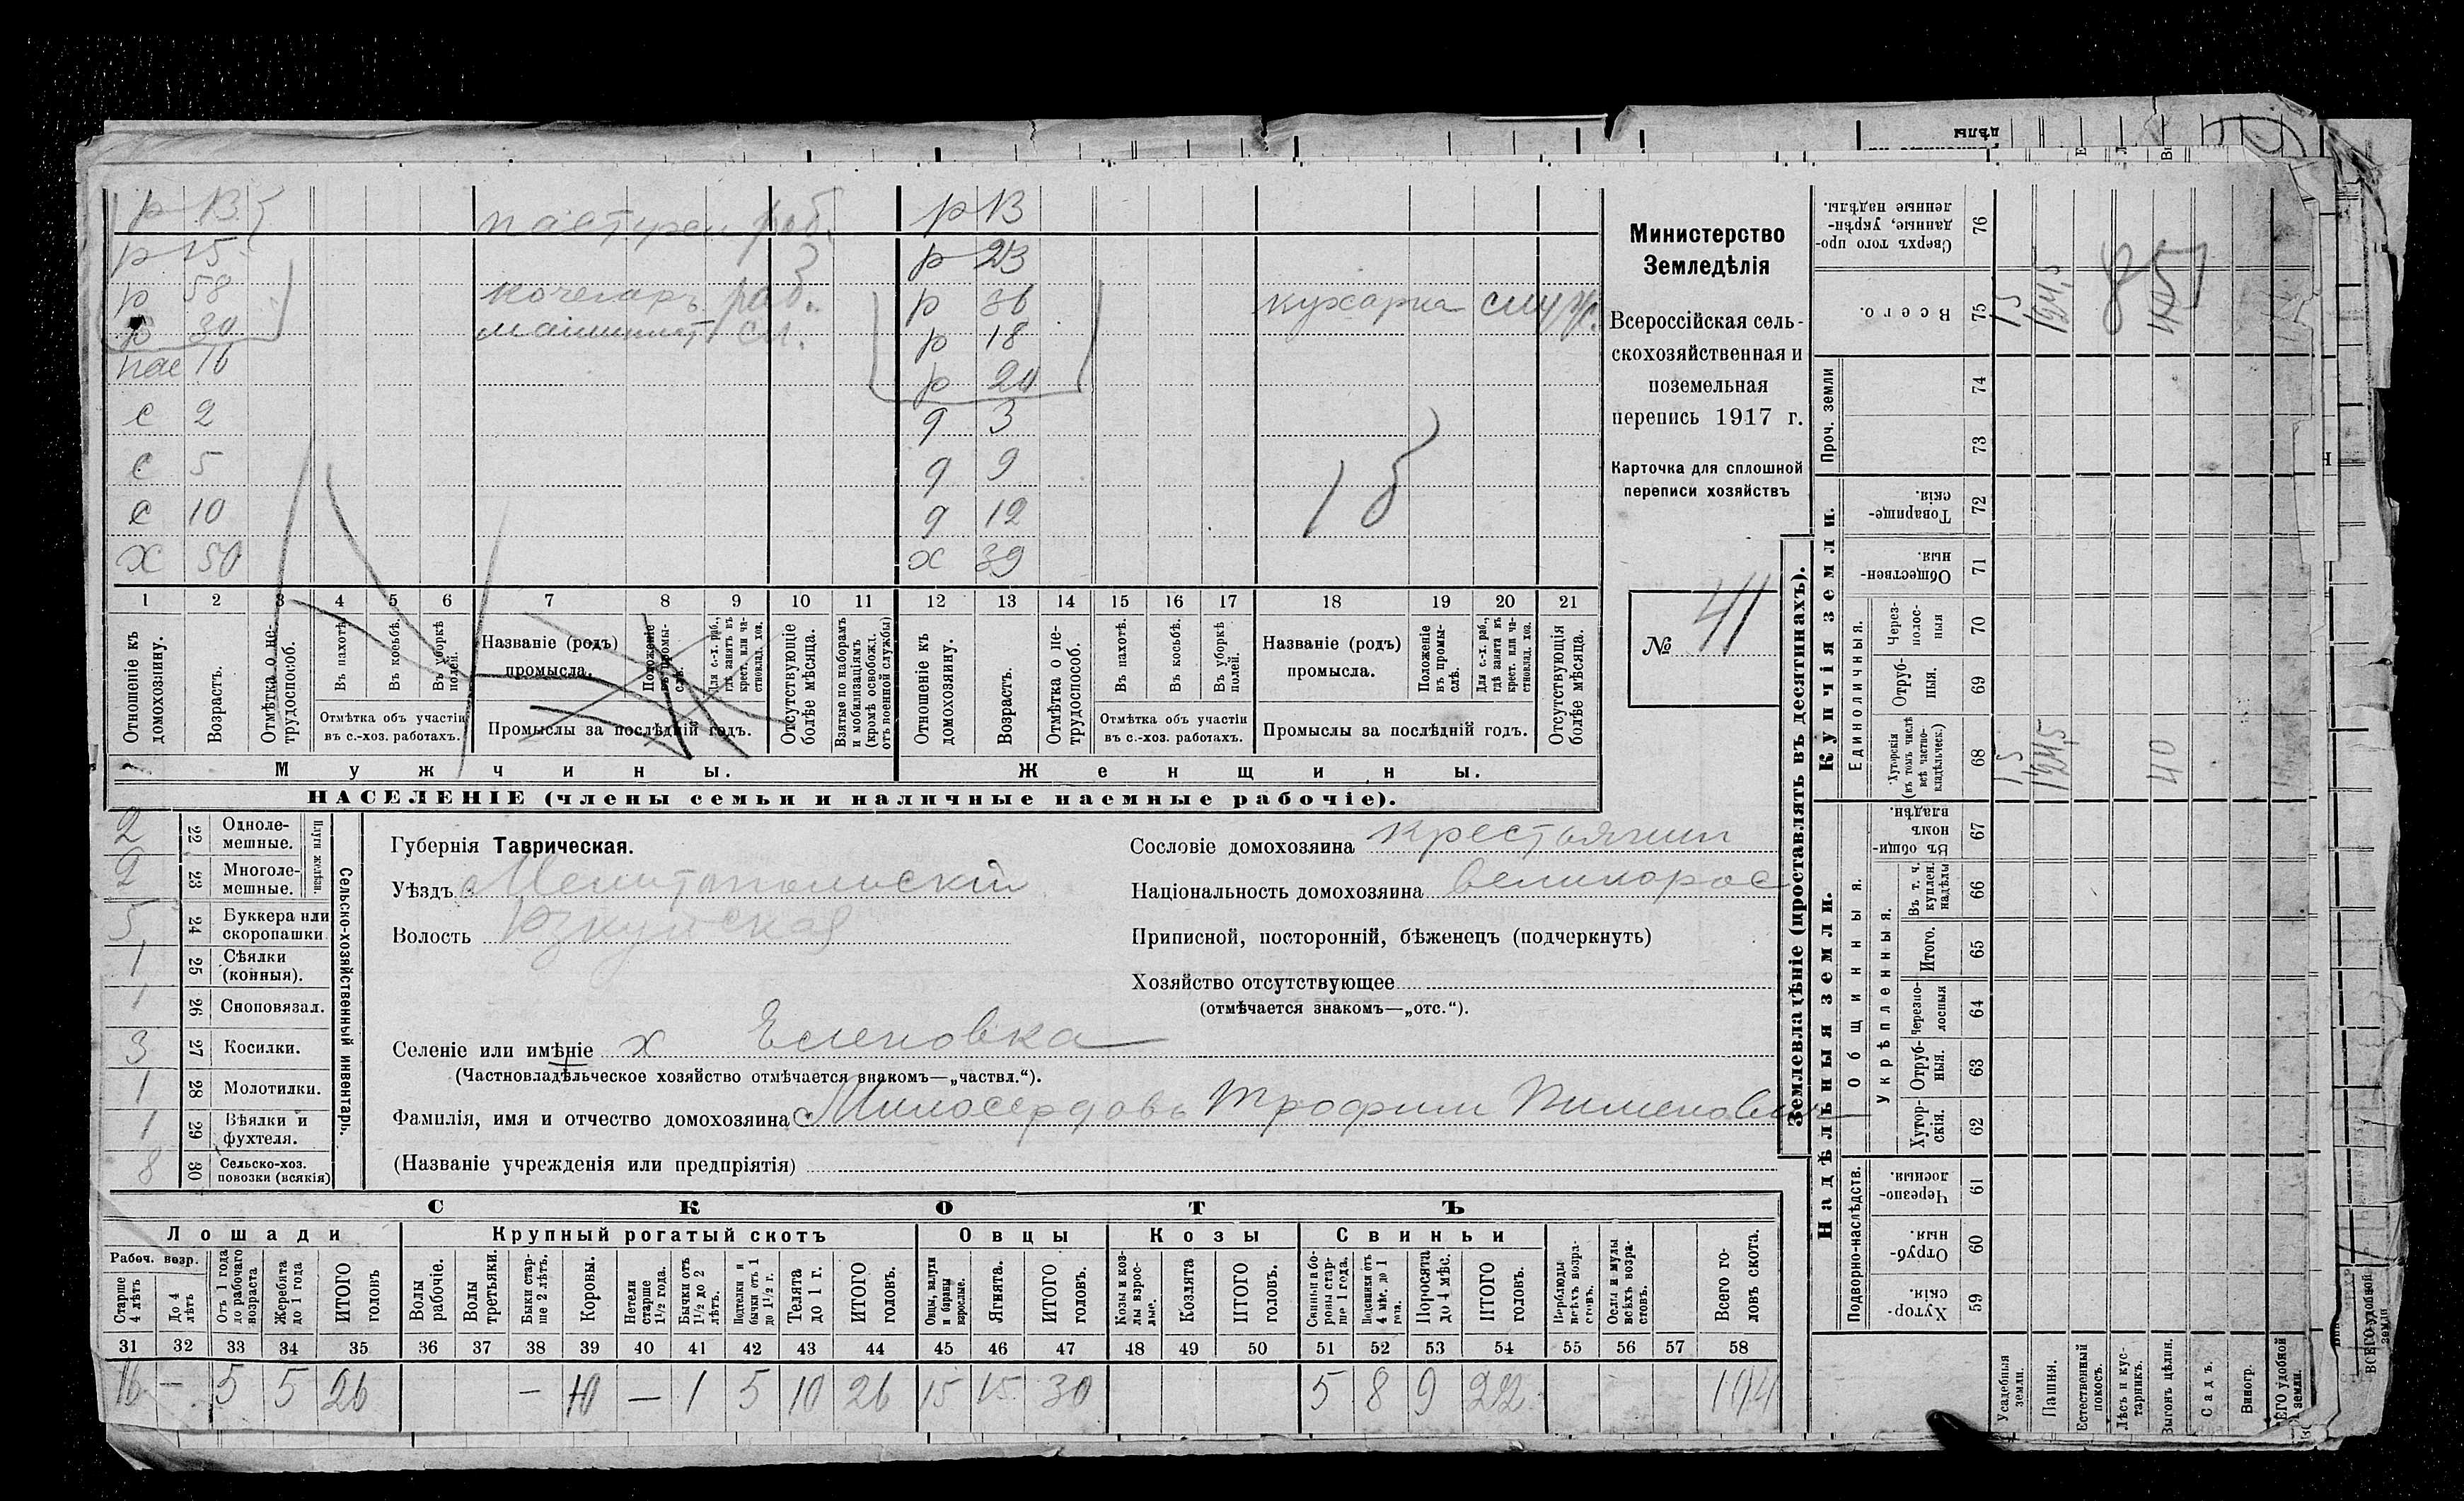 р 13 пастухи раб. р 13
р 15 р 23
р 58 кочегаръ раб. р 36 кухарка служ.
р 30 машинист сл. р 18
пас 16 р 20
с 2 д 3
с 5 д 9
с 10 д 12
х 50 х 39
18
1 2 3 4 5 6 7 8 9 10 11 12 13 14 15 16 17 18 19 20 21
Отношеніе къ домохозяину.
Возрастъ.
Отмѣтка о нетрудоспособ.
Въ пахотѣ.
Въ косьбѣ.
Въ уборкѣ полей.
Отмѣтка объ участіи въ с.-хоз. работахъ.
Названіе (родъ) промысла.
Положеніе въ промыслѣ.
Для с.-х. раб., гдѣ занятъ въ крест. или частновлад. хоз.
Промыслы за послѣдній годъ.
Отсутствующіе болѣе мѣсяца.
Взятые по наборамъ и мобилизаціямъ (кромѣ освобожд. отъ военной службы)
Отношеніе къ домохозяину.
Возрастъ.
Отмѣтка о нетрудоспособ.
Въ пахотѣ.
Въ косьбѣ.
Въ уборкѣ полей.
Отмѣтка объ участіи въ с.-хоз. работахъ.
Названіе (родъ) промысла.
Положеніе въ промыслѣ.
Для с.-х. раб., гдѣ занята въ крест. или частновлад. хоз.
Промыслы за послѣдній годъ.
Отсутствующія болѣе мѣсяца.
Мужчины. Женщины.
НАСЕЛЕНІЕ (члены семьи и наличные наемные рабочіе).
Министерство
Земледѣлія
Всероссійская сель-
скохозяйственная и
поземельная
перепись 1917 г.
Карточка для сплошной
переписи хозяйствъ
№ 41
2 22 Одноле-мешные.
2 23 Многоле-мешные.
Плуги желѣзн.
5 24 Буккера или скоропашки
1 25 Сѣялки (конныя).
1 26 Сноповязал.
3 27 Косилки.
1 28 Молотилки.
1 29 Вѣялки и фухтеля.
8 30 Сельско-хоз. повозки (всякія)
Сельско-хозяйственный инвентарь.
Губернія Таврическая.
Уѣздъ Мелитопольскій
Волость
Селеніе или имѣніе х Еленовка
(Частновладѣльческое хозяйство отмѣчается знакомъ—„частвл.“).
Фамилія, имя и отчество домохозяина Милосердовъ Трофим Пименович
(Названіе учрежденія или предпріятія)
Сословіе домохозяина крестьянин
Національность домохозяина великорос
Приписной, посторонній, бѣженецъ (подчеркнуть)
Хозяйство отсутствующее
(отмѣчается знакомъ—„отс.“).
СКОТЪ
Лошади Крупный рогатый скотъ Овцы Козы Свиньи
Рабоч. возр.
Старше 4 лѣтъ
До 4 лѣтъ
Отъ 1 года до рабочаго возраста
Жеребята до 1 года
ИТОГО головъ
Волы рабочіе.
Волы третьяки.
Быки старше 2 лѣтъ.
Коровы.
Нетели старше 1½ года.
Бычки отъ 1½ до 2 лѣтъ.
Подтелки и бычки отъ 1 до 1½ г.
Телята до 1 г.
ИТОГО головъ.
Овцы, валухи и бараны взрослые.
Ягнята.
ИТОГО головъ.
Козы и козлы взрослые.
Козлята
ИТОГО головъ.
Свиньи и боровы старше 1 года.
Подсвинки отъ 4 мѣс. до 1 года.
Поросята до 4 мѣс.
ИТОГО головъ.
Верблюды всѣхъ возрастовъ.
Ослы и мулы всѣхъ возрастовъ.
Всего головъ скота.
31 32 33 34 35 36 37 38 39 40 41 42 43 44 45 46 47 48 49 50 51 52 53 54 55 56 57 58
16 — 5 5 26 — 10 — 1 5 10 26 15 15 30 5 8 9 22 104
Землевладѣніе (проставлять въ десятинахъ).
Купчія земли.
Надѣльныя земли.
Сверхъ того проданные, укрѣпленные надѣлы. 76
Всего. 75 15 124,5 40
85
Проч. земли 74 73
Товарищескія. 72
Общественныя. 71
Единоличныя.
Черезполосныя 70
Отрубныя. 69
Хуторскія (въ томъ числѣ всѣ частновладѣльческ.) 68 15 124,5 40
Общинныя.
Въ общинномъ владѣн. 67
Укрѣпленныя.
Въ т. ч. куплен. надѣлы 66
Итого. 65
Черезполосныя 64
Отрубныя. 63
Хуторскія. 62
Подворно-наслѣдств.
Черезполосныя 61
Отрубныя. 60
Хуторскія. 59
Усадебныя земли.
Пашня.
Естественный покосъ.
Лѣсъ и кустарникъ.
Выгонъ цѣлин.
Садъ.
Виногр.
ЕГО удобной земли.
ВСЕГО удобной земли